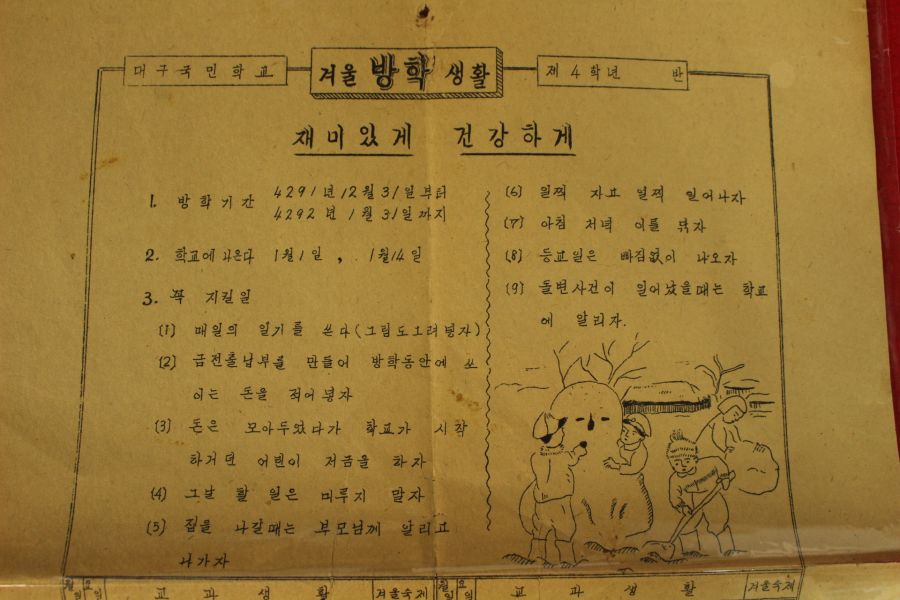 대구국민학교
겨울 방학 생활
제 4 학년 반
재미있게 건강하게
1. 방학기간 4291년 12월 31일부터
4292년 1월 31일까지
2. 학교에 나온다 1월1일, 1월14일
3. 꼭 지킬일
(1) 매일의 일기를 쓴다(그림도그려넣자)
(2) 금전출납부를 만들어 방학동안에 쓰
이는 돈을 적어넣자
(3) 돈은 모아두었다가 학교가 시작
하거던 어린이 저금을 하자
(4) 그날 할 일은 미루지 말자
(5) 집을 나갈때는 부모님께 알리고
나가자
(6) 일찍 자고 일찍 일어나자
(7) 아침 저녁 이를 닦자
(8) 등교일은 빠짐없이 나오자
(9) 돌변사건이 일어났을때는 학교
에 알리자.
월일 요일 교과생활 겨울숙제 월일 요일 교과생활 겨울숙제